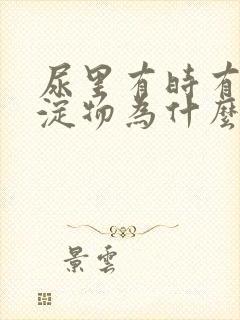 尿里有時有
淀物為什麼
景雲